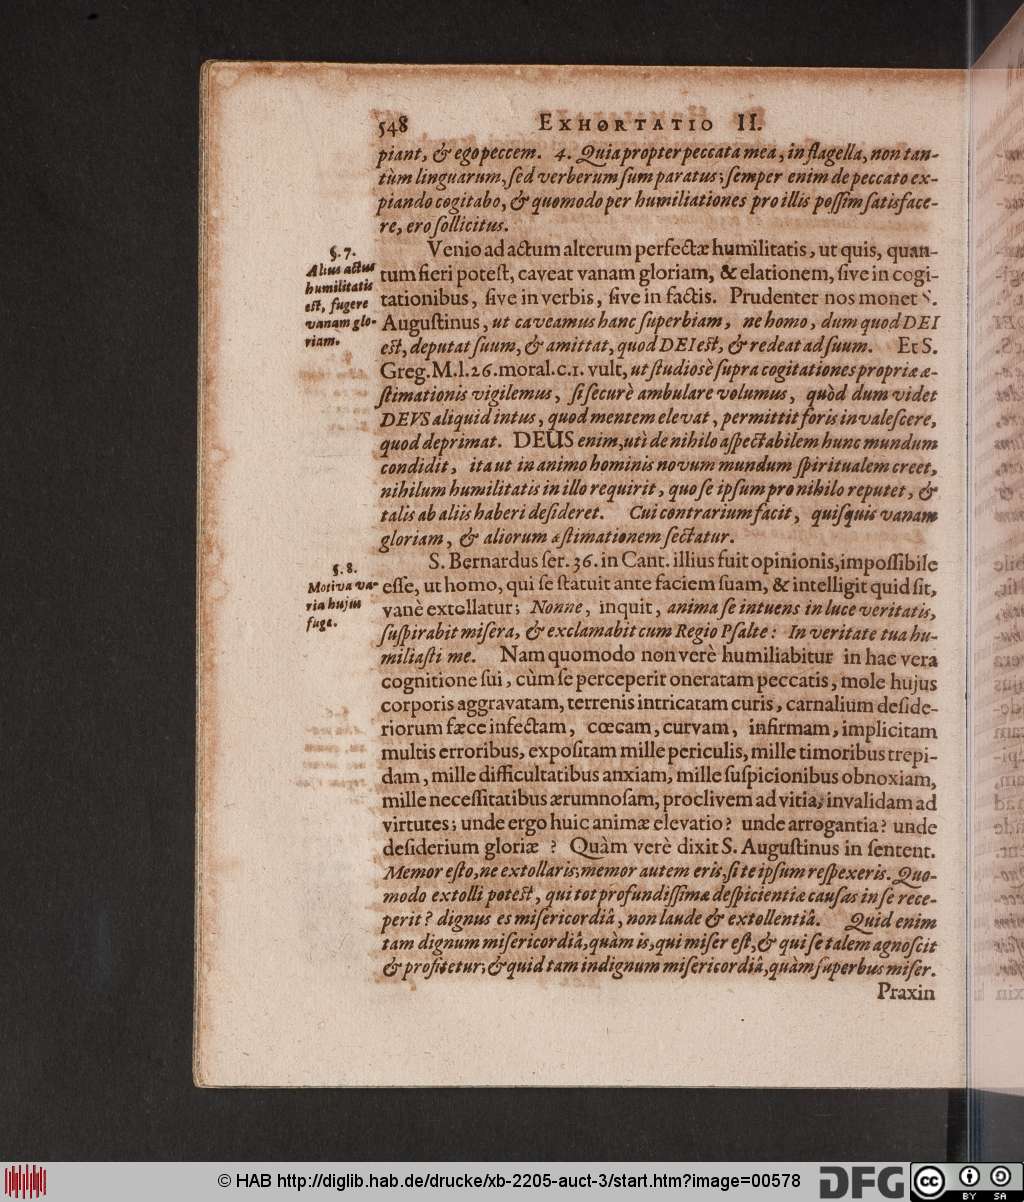 548 EXHORTATIO II.
piant, & ego peccem. 4. Quia propter peccata mea, in flagella, non tan-
tùm linguarum, sed verberum sum paratus; semper enim de peccato ex-
piando cogitabo, & quomodo per humiliationes pro illis possim satisface-
re, ero sollicitus.
§. 7.
Alius actus
humilitatis
est, fugere
vanam glo-
riam.
Venio ad actum alterum perfectæ humilitatis, ut quis, quan-
tum fieri potest, caveat vanam gloriam, & elationem, sive in cogi-
tationibus, sive in verbis, sive in factis. Prudenter nos monet S.
Augustinus, ut caveamus hanc superbiam, ne homo, dum quod DEI
est, deputat suum, & amittat, quod DEI est, & redeat ad suum. Et S.
Greg. M. l. 26. moral. c. 1. vult, ut studiosè supra cogitationes propriæ æ-
stimationis vigilemus, si securè ambulare volumus, quòd dum videt
DEVS aliquid intus, quod mentem elevat, permittit foris invalescere,
quod deprimat. DEUS enim, uti de nihilo aspectabilem hunc mundum
condidit, ita ut in animo hominis novum mundum spiritualem creet,
nihilum humilitatis in illo requirit, quo se ipsum pro nihilo reputet, &
talis ab aliis haberi desideret. Cui contrarium facit, quisquis vanam
gloriam, & aliorum æstimationem sectatur.
§. 8.
Motiva va-
ria hujus
fugæ.
S. Bernardus ser. 36. in Cant. illius fuit opinionis, impossibile
esse, ut homo, qui se statuit ante faciem suam, & intelligit quid sit,
vanè extollatur; Nonne, inquit, anima se intuens in luce veritatis,
suspirabit misera, & exclamabit cum Regio Psalte: In veritate tua hu-
miliasti me. Nam quomodo non verè humiliabitur in hac vera
cognitione sui, cùm se perceperit oneratam peccatis, mole hujus
corporis aggravatam, terrenis intricatam curis, carnalium deside-
riorum fæce infectam, cœcam, curvam, infirmam, implicitam
multis erroribus, expositam mille periculis, mille timoribus trepi-
dam, mille difficultatibus anxiam, mille suspicionibus obnoxiam,
mille necessitatibus ærumnosam, proclivem ad vitia, invalidam ad
virtutes; unde ergo huic animæ elevatio? unde arrogantia? unde
desiderium gloriæ ? Quàm verè dixit S. Augustinus in sentent.
Memor esto, ne extollaris; memor autem eris, si te ipsum respexeris. Quo-
modo extolli potest, qui tot profundissimæ despicientiæ causas in se rece-
perit? dignus es misericordiâ, non laude & extollentiâ. Quid enim
tam dignum misericordiâ, quàm is, qui miser est, & qui se talem agnoscit
& profitetur; & quid tam indignum misericordiâ, quàm superbus miser.
Praxin
© HAB http://diglib.hab.de/drucke/xb-2205-auct-3/start.htm?image=00578
DFG
cc
BY SA